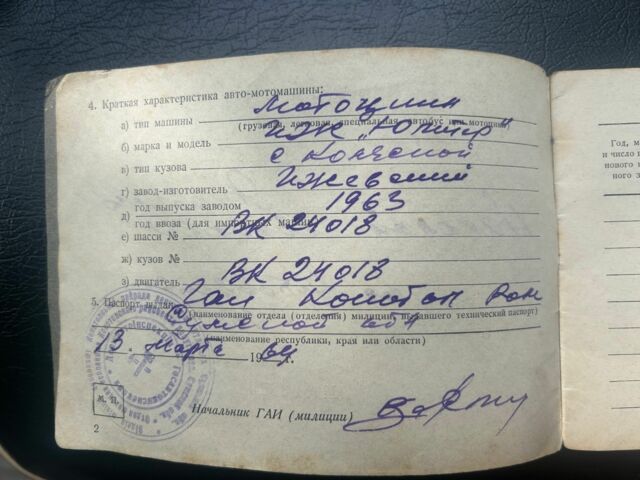 4. Краткая характеристика авто-мотомашины:
а) тип машины мотоцикл
(грузовая, легковая, специальная, автобус или мотоцикл)
б) марка и модель ИЖ „Юпитер"
в) тип кузова с коляской
г) завод-изготовитель Ижевский
д) год выпуска заводом 1963
год ввоза (для импортных машин)
е) шасси № ВК 24018
ж) кузов №
з) двигатель ВК 24018
5. Паспорт выдан Гаи Конотоп
(наименование отдела (отделения) милиции, выдавшего технический паспорт)
Сумской обл
(наименование республики, края или области)
13. Марта 1964 г.
М. П.
Начальник ГАИ (милиции)
2
Год, м
и число п
нового н
ного з